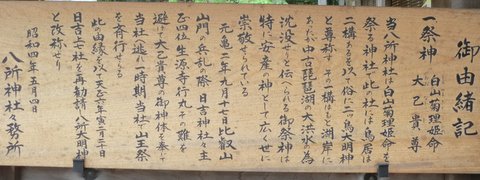 御由緒記
一祭神　白山菊理姫命
大己貴尊
当八所神社は白山菊理姫命を
祭る神社で此の社には鳥居は
二構あるを以て俗に二ノ鳥大明神
と尊称す その一構はもと湖岸に
あったが中古琵琶湖の大洪水の為
沈没せりと伝へられる 御祭神は
特に安産の神として広く世に
崇敬せられている
元亀二年九月十二日比叡山
山門の兵乱の際 日吉神社々主
正四位生源寺行丸その難を
避けて大己貴尊の御神体を奉じて
当社に逃れ一時期当社で山王祭
を斉行せらる
此の由縁を以て天正六年寅二月三日
日吉七社を再勧請 八所大明神
と改称せり
昭和四年五月四日
八所神社々務所